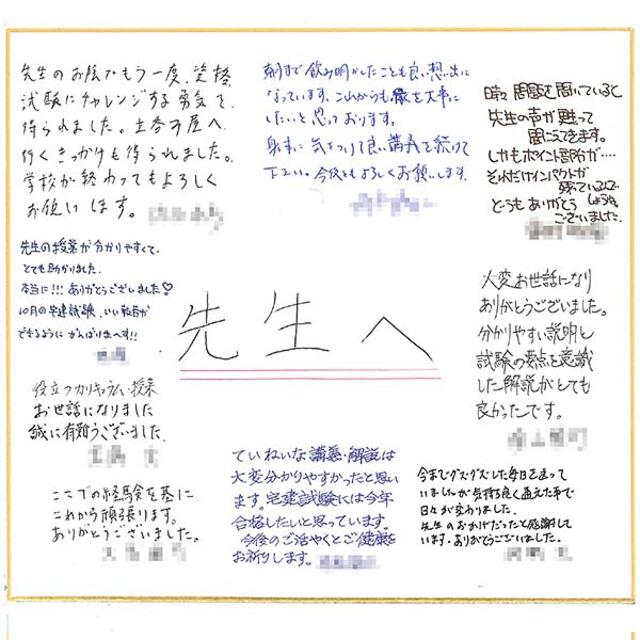 先生のお陰でもう一度、資格
試験にチャレンジする勇気を
得られました。土呑み屋へ
行くきっかけも得られました。
学校が終わってもよろしく
お願いします。
朝まで飲み明かしたことも良い想い出に
なっています。これからも縁を大事に
したいと思っております。
身体に気をつけて良い講義を続けて
下さい。今後ともよろしくお願いします。
時々問題を聞いていると
先生の声が甦って
聞こえてきます。
しかもポイント部分が…
それだけインパクトが
残っているんで
しょうね。
どうもありがとう
ございました。
先生の授業が分かりやすくて、
とても助かりました。
本当に!!! ありがとうございました♡
10月の宅建試験、いい報告が
できるようにがんばりまーす!!
先生へ
大変お世話になり
ありがとうございました。
分かりやすい説明と
試験の要点を意識
した解説がとても
良かったです。
役立つカリキュラム・授業
お世話になりました
誠に有難うございました。
ここでの経験を基に
これから頑張ります。
ありがとうございました。
ていねいな講義・解説は
大変分かりやすかったと思い
ます。宅建試験には今年
合格したいと思っています。
今後のご活やくとご健康を
お祈りします。
今までグズグズした毎日を送って
いましたが気持ち良く通えた事で
日々が変わりました。
先生のおかげだったと感謝して
います。ありがとうございました。